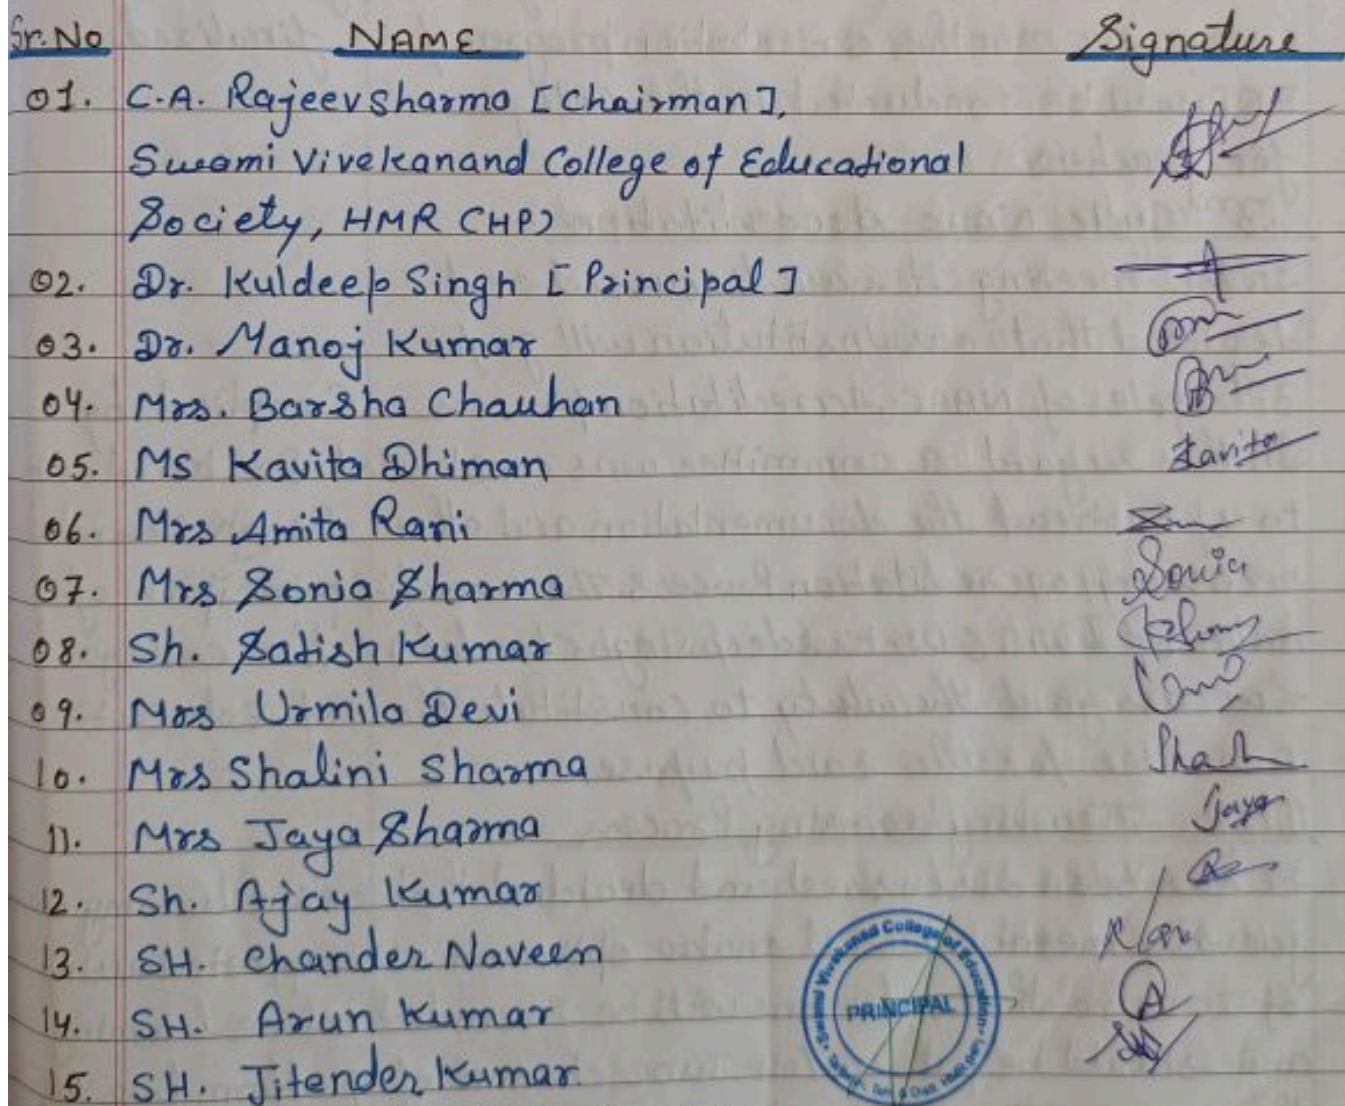 Sr. No NAME Signature
01. C.A. Rajeev Sharma [Chairman],
Swami Vivekanand College of Educational
Society, HMR (HP)
02. Dr. Kuldeep Singh [Principal]
03. Dr. Manoj Kumar
04. Mrs. Barsha Chauhan
05. Ms Kavita Dhiman Kavita
06. Mrs Amita Rani
07. Mrs Sonia Sharma Sonia
08. Sh. Satish Kumar
09. Mrs Urmila Devi
10. Mrs Shalini Sharma
11. Mrs Jaya Sharma Jaya
12. Sh. Ajay Kumar
13. SH. Chander Naveen
14. SH. Arun Kumar
15. SH. Jitender Kumar
Swami Vivekanand College of Education
PRINCIPAL